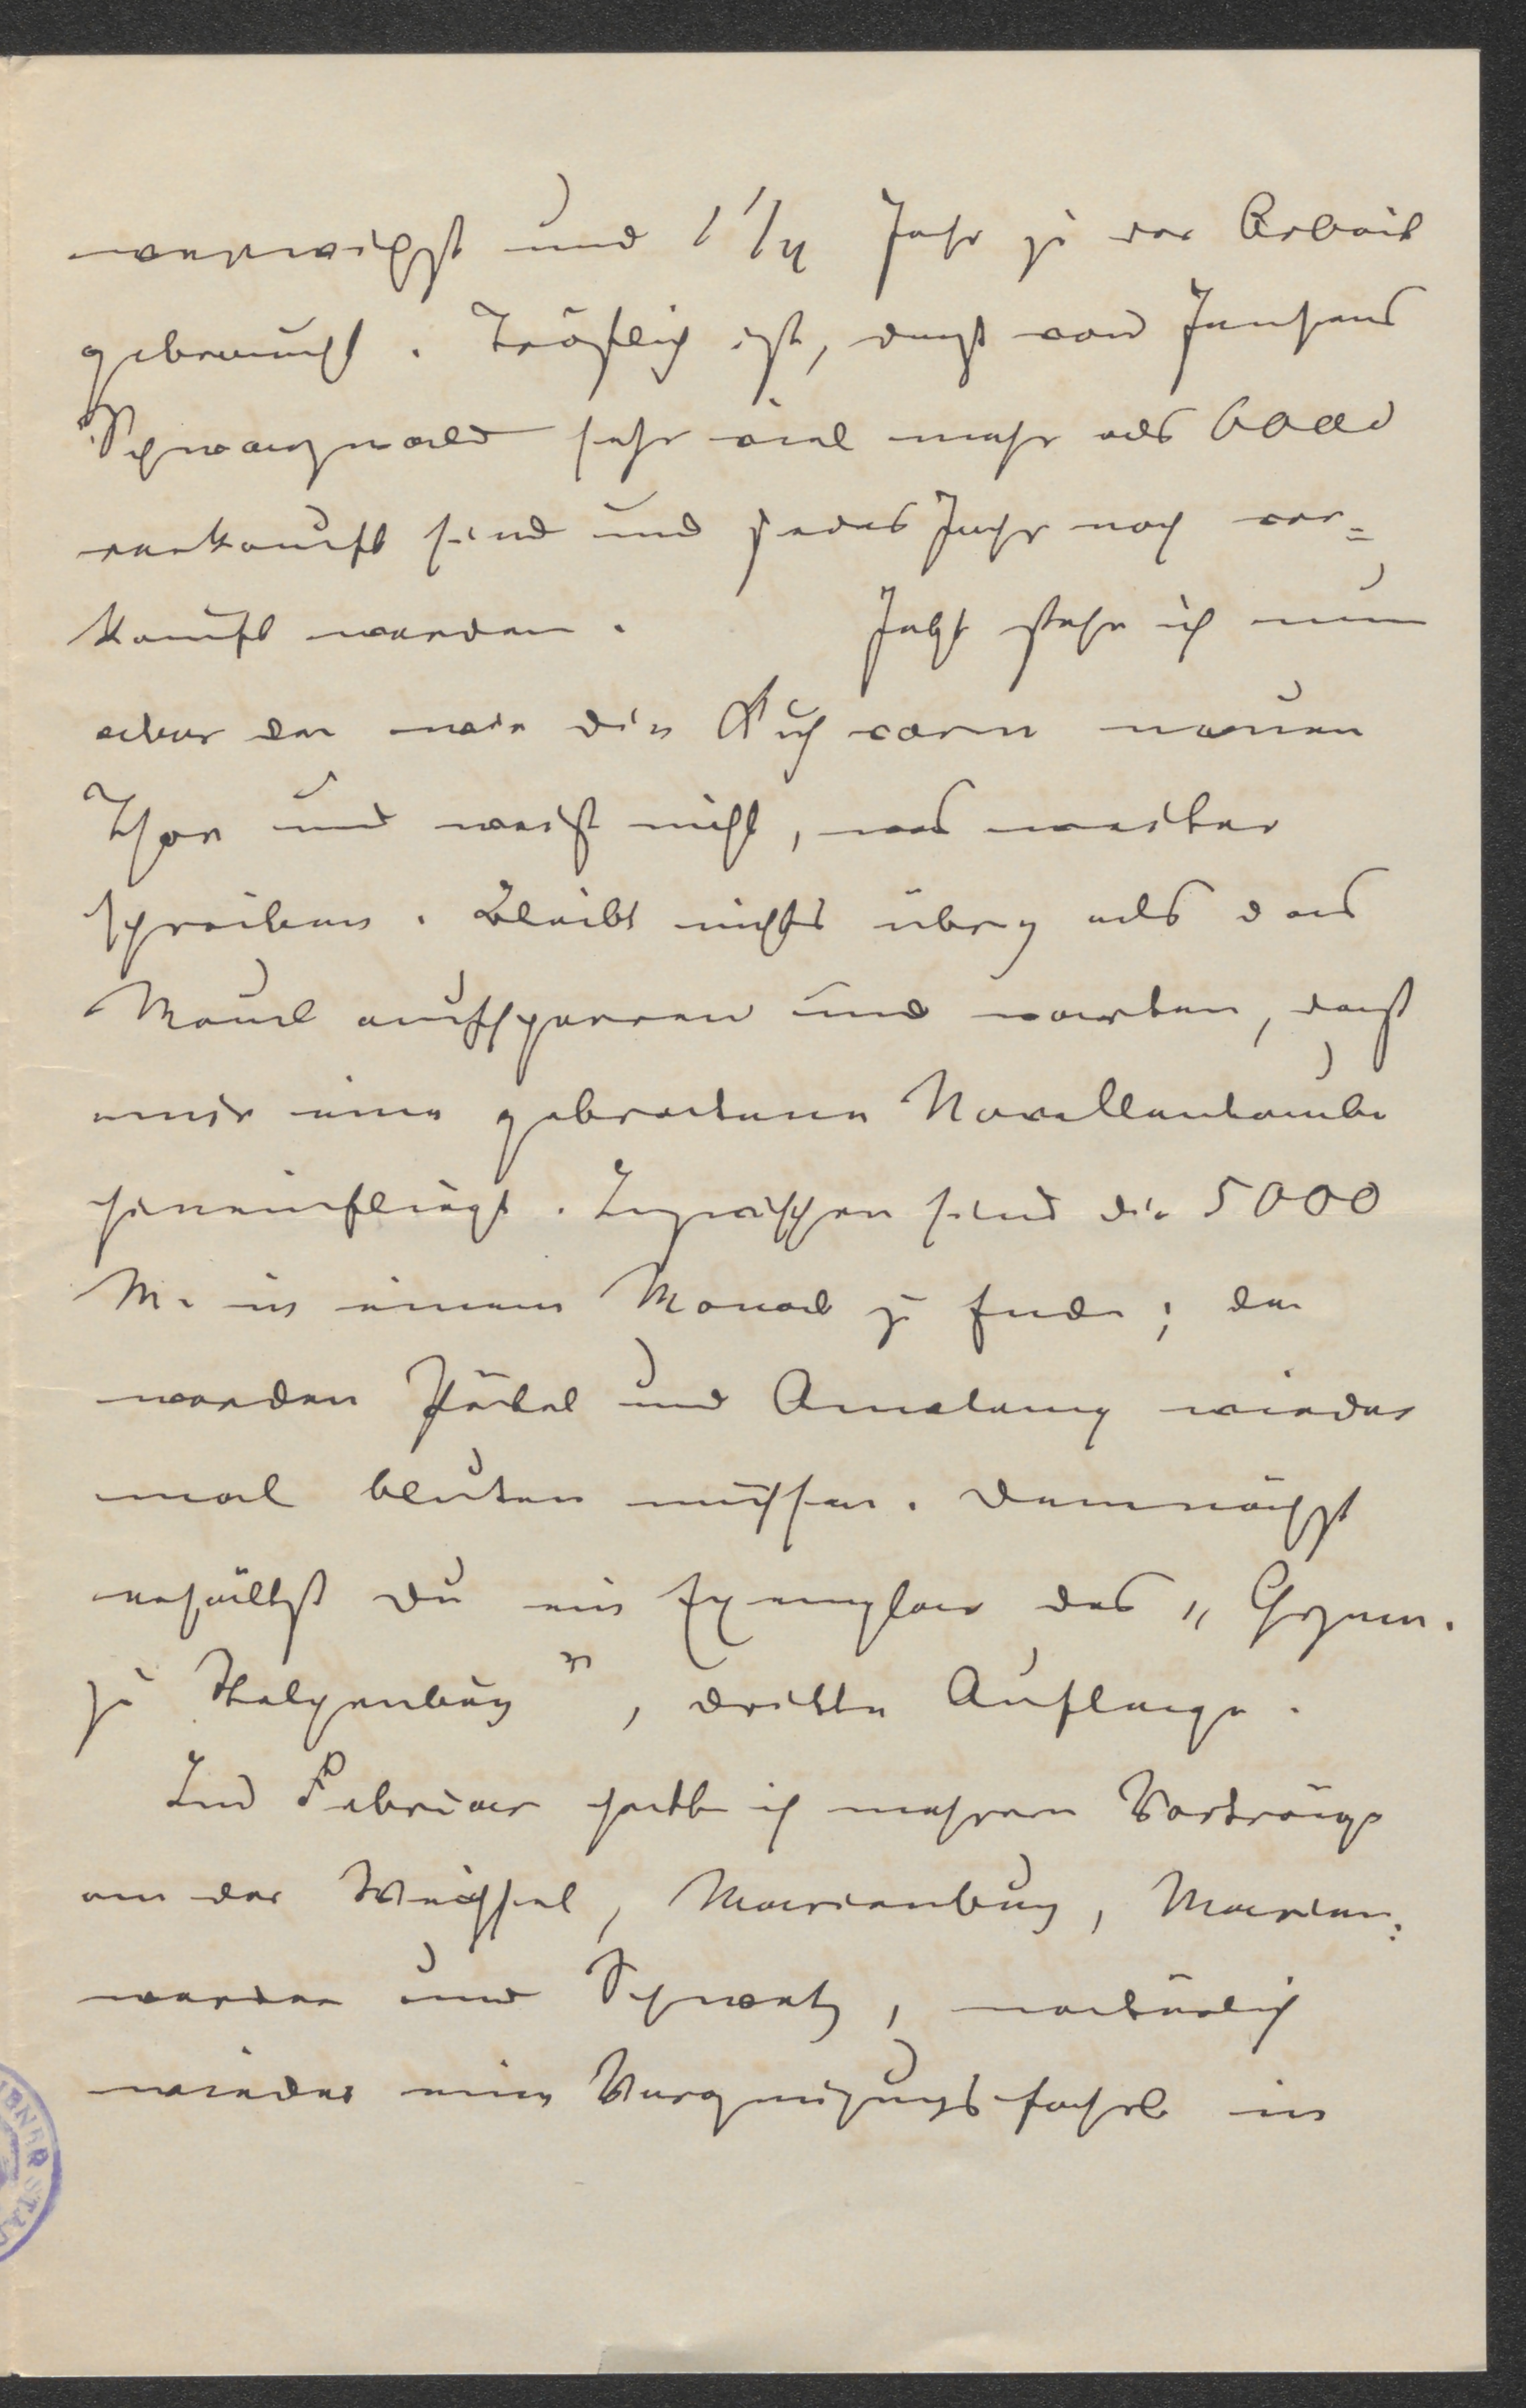 verwichst und 1 1/4 Jahr zu der Arbeit
gebraucht. Tröstlich ist, dass von Jensens
"Schwarzwald" sehr viel mehr als 6000
verkauft sind und jedes Jahr noch ver=
kauft werden. Jetzt stehe ich nun
aber da wie die Kuh vorm neuen
Thor und weiss nicht, was weiter
schreiben. Bleibt nichts übrig als das
Maul aufsperren und warten, dass
mir eine gebratene Novellentaube
hineinfliegt. Inzwischen sind die 5000
M. in einem Monat zu Ende; da
werden Pätel und Amelang wieder
mal bluten müssen. Demnächst
erhältst du ein Exemplar des „Gymn.
zu Stolpenburg", dritte Auflage.
Im Februar hatte ich mehrere Vorträge
an der Weichsel, Marienburg, Marien=
werder und Schwetz, natürlich
wieder eine Vergnügungsfahrt in